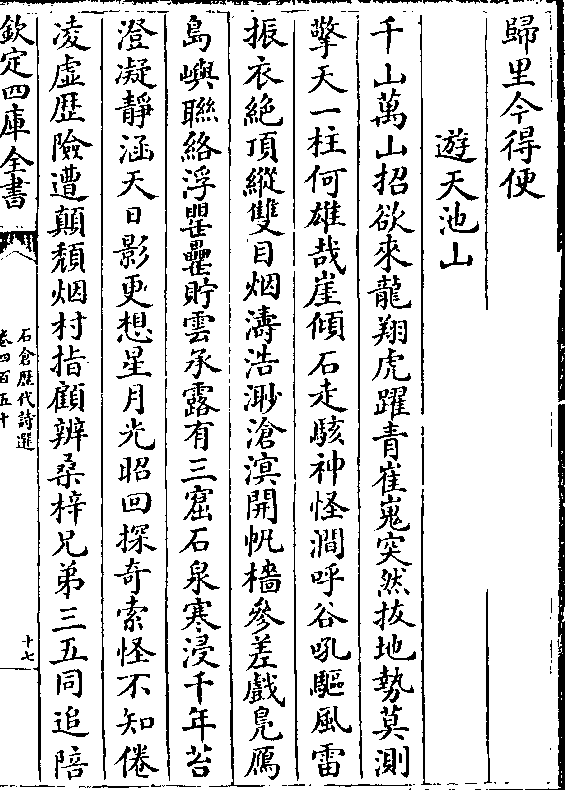 歸里今得便
遊天池山
千山萬山招欲來龍翔虎躍青崔嵬突然拔地勢莫測
擎天一柱何雄哉崖傾石走駭神怪澗呼谷吼驅風雷
振衣絶頂縱雙目烟濤浩渺滄溟開帆檣參差戲鳧鴈
島嶼聯絡浮罌罍貯雲承露有三窟石泉寒浸千年苔
澄凝靜涵天日影更想星月光昭回探奇索怪不知倦
凌虛歴險遭顛頽烟村指顧辨桑梓兄弟三五同追陪
欽定四庫全書
石倉歴代詩選
卷四百五十
十七